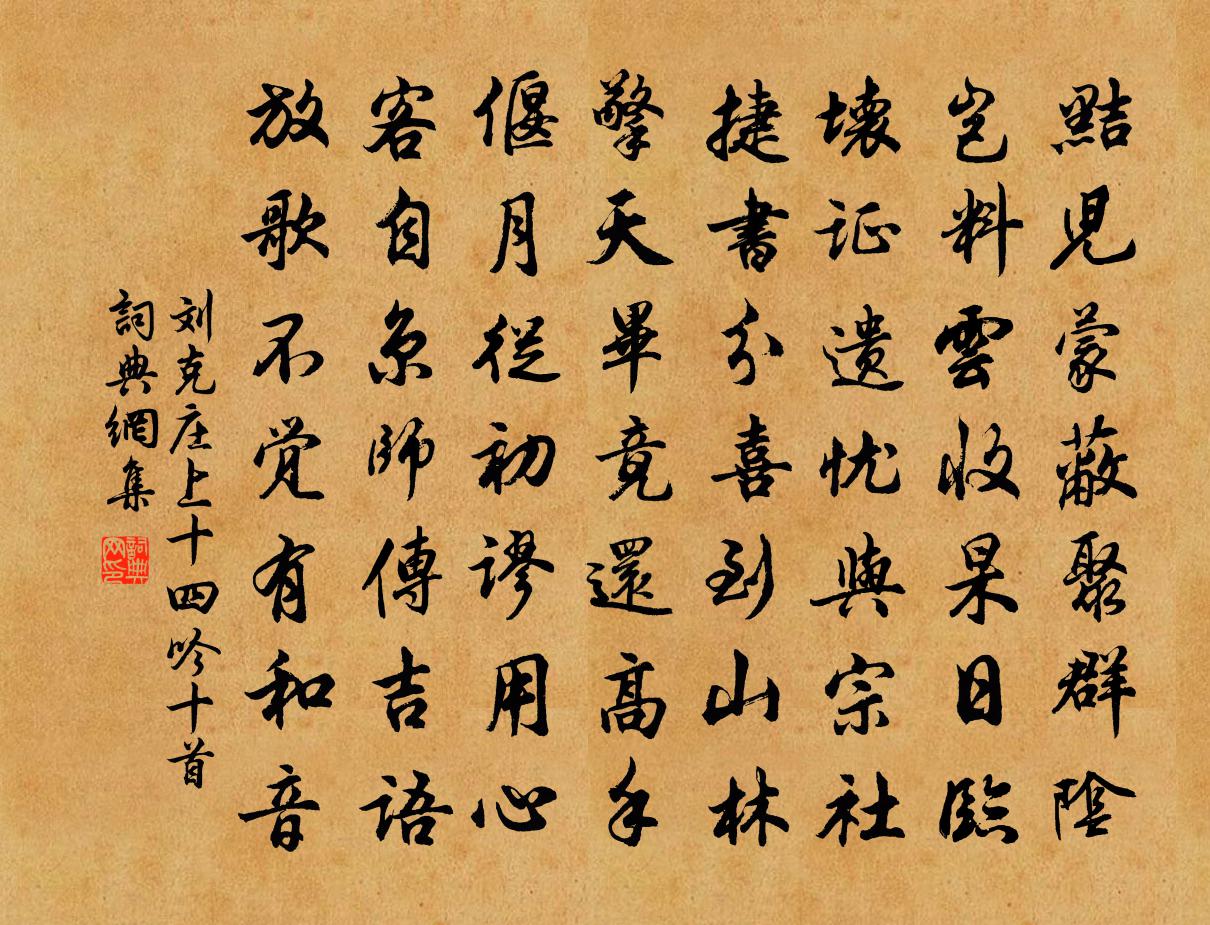 黠児蒙蔽聚群陰
岂料雲收杲日臨
壊证遗忧與宗社
捷書分喜到山林
擎天畢竟還高手
偃月從初谬用心
客自京師傳吉語
放歌不觉有和音
刘克庄上十四吟十首
詞典網集
詞典网印